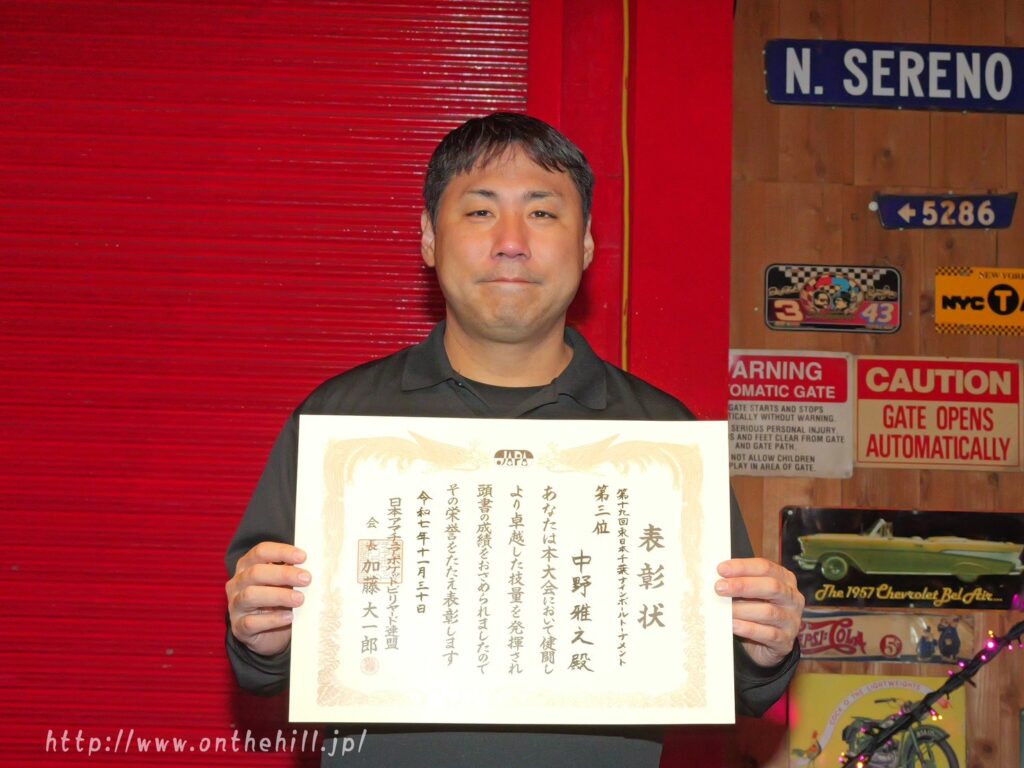 表彰状
第十九回東日本千葉ナインボールトーナメント
第三位
中野雅之殿
あなたは本大会において健闘し
より卓越した技量を発揮され
頭書の成績をおさめられましたので
その栄誉をたたえ表彰します
令和七年十一月三十日
日本アマチュアポケットビリヤード連盟
会長 加藤大一郎
JAPA
N. SERENO
←5286
3
43
NEW YORK
NYC T
ARNING
OMATIC GATE
GATE STARTS AND STOPS
TICALLY WITHOUT WARNING.
SERIOUS PERSONAL INJURY.
S AND FEET CLEAR FROM GATE
AND GATE PATH.
NOT ALLOW CHILDREN
PLAY IN AREA OF GATE.
CAUTION
GATE OPENS
AUTOMATICALLY
The 1957 Chevrolet Bel Air...
PEPSI:COLA
5¢
COCK O' THE LIGHTWEIGHTS
http://www.onthehill.jp/